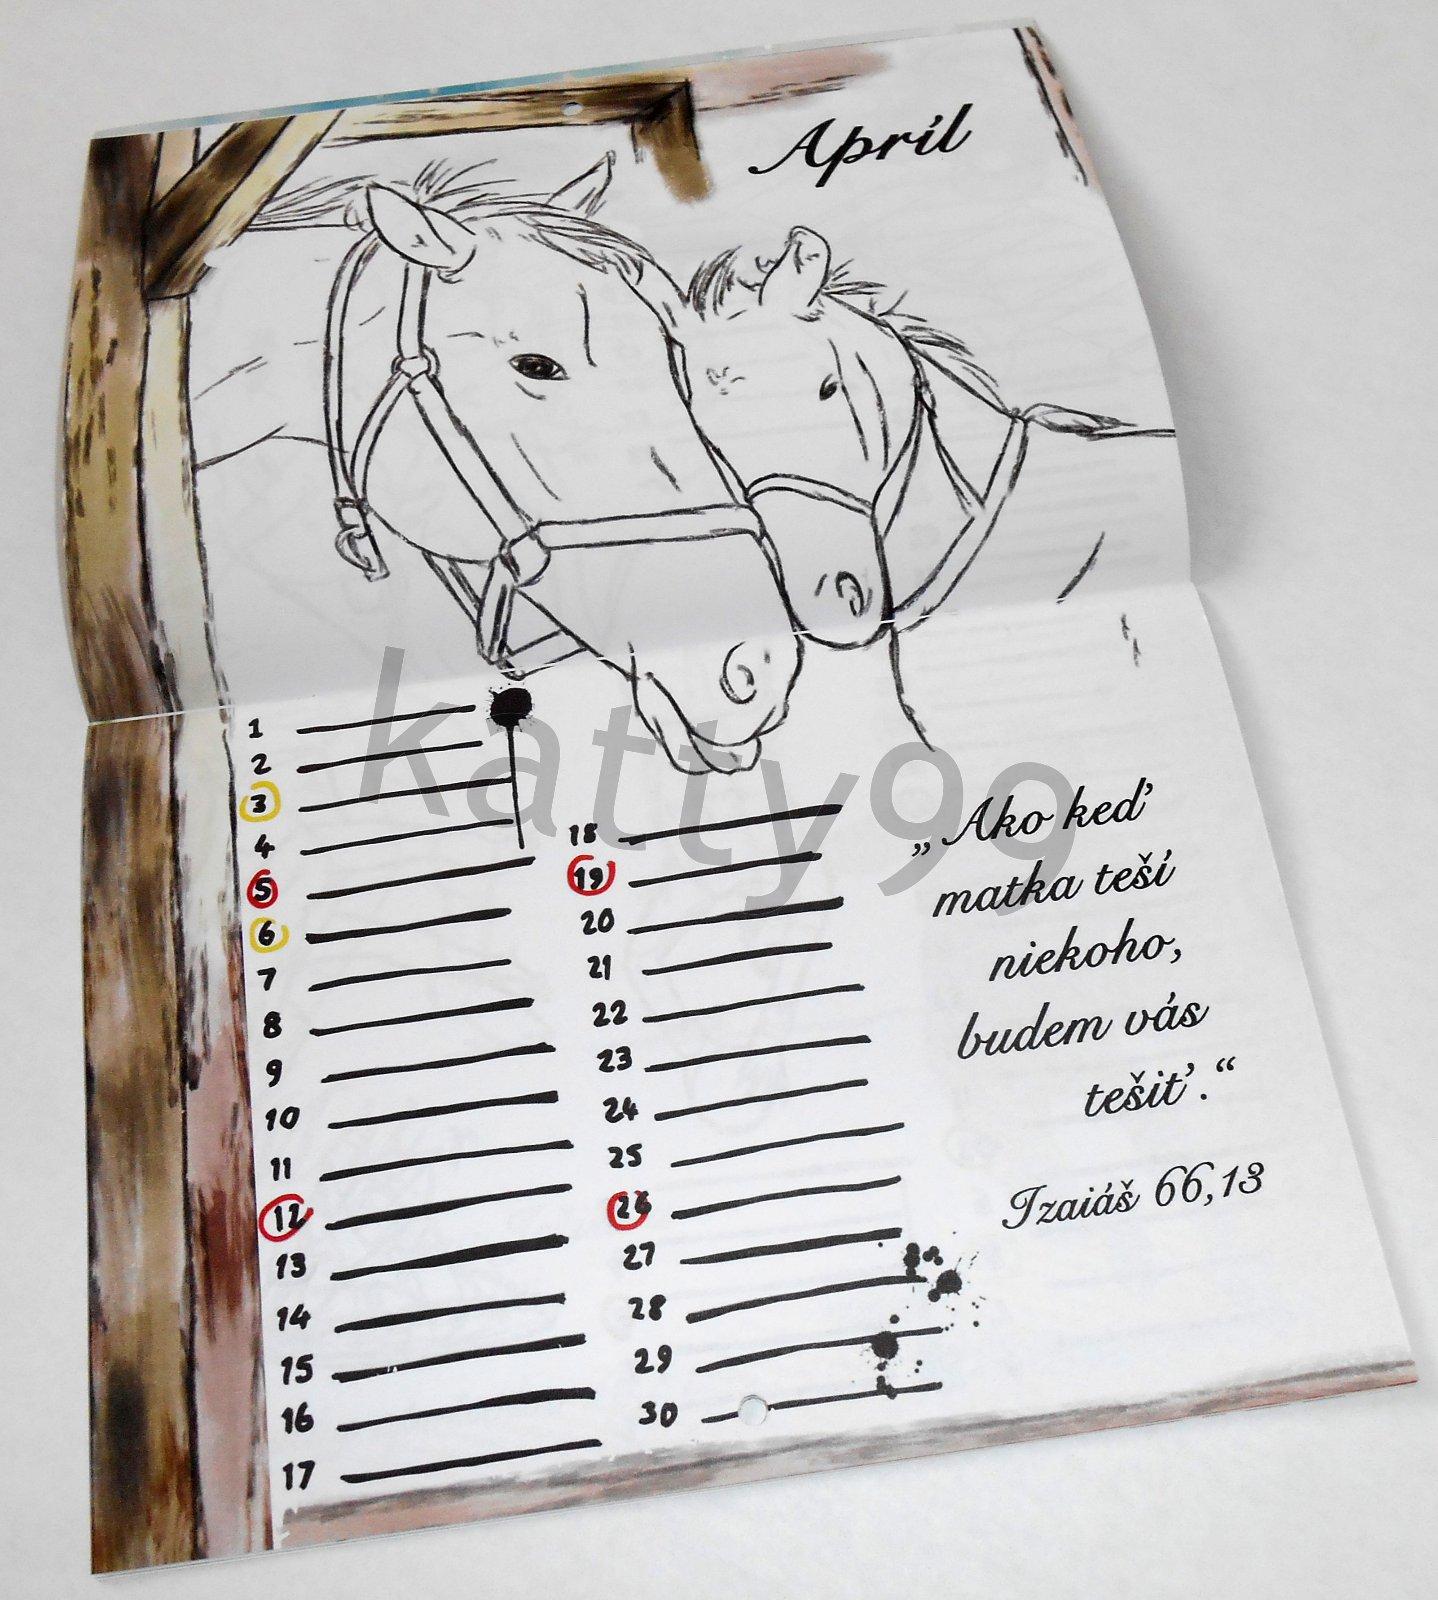 Apríl
1
2
3
4
5
6
7
8
9
10
11
12
13
14
15
16
17
18
19
20
21
22
23
24
25
26
27
28
29
30
„Ako keď
matka teší
niekoho,
budem vás
tešiť.“
Izaiáš 66,13
katty99